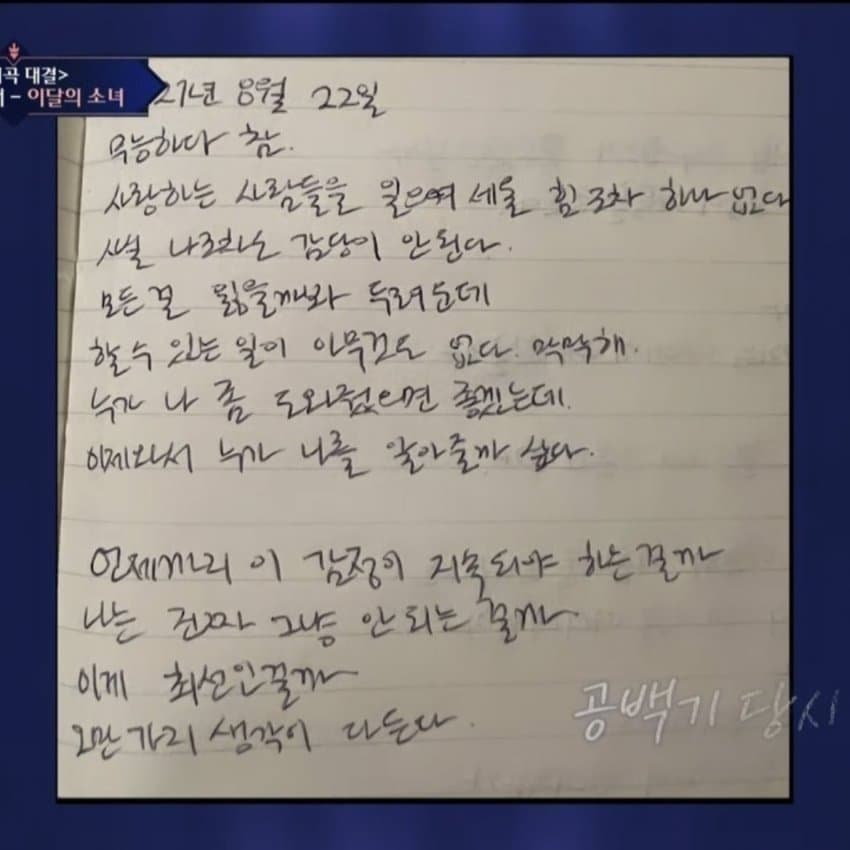 곡 대결>
– 이달의 소녀
21년 8월 22일
무능하다 참.
사랑하는 사람들을 일으켜 세울 힘조차 하나 없다
사실 나조차도 감당이 안된다.
모든걸 잃을까봐 두려운데
할 수 있는 일이 아무것도 없다. 막막해.
누가 나 좀 도와줬으면 좋겠는데.
이제와서 누가 나를 알아줄까 싶다.
언제까지 이 감정이 지속되야 하는걸까
나는 진짜 그냥 안 되는 걸까
이게 최선인걸까
오만가지 생각이 다든다.
공백기 당시